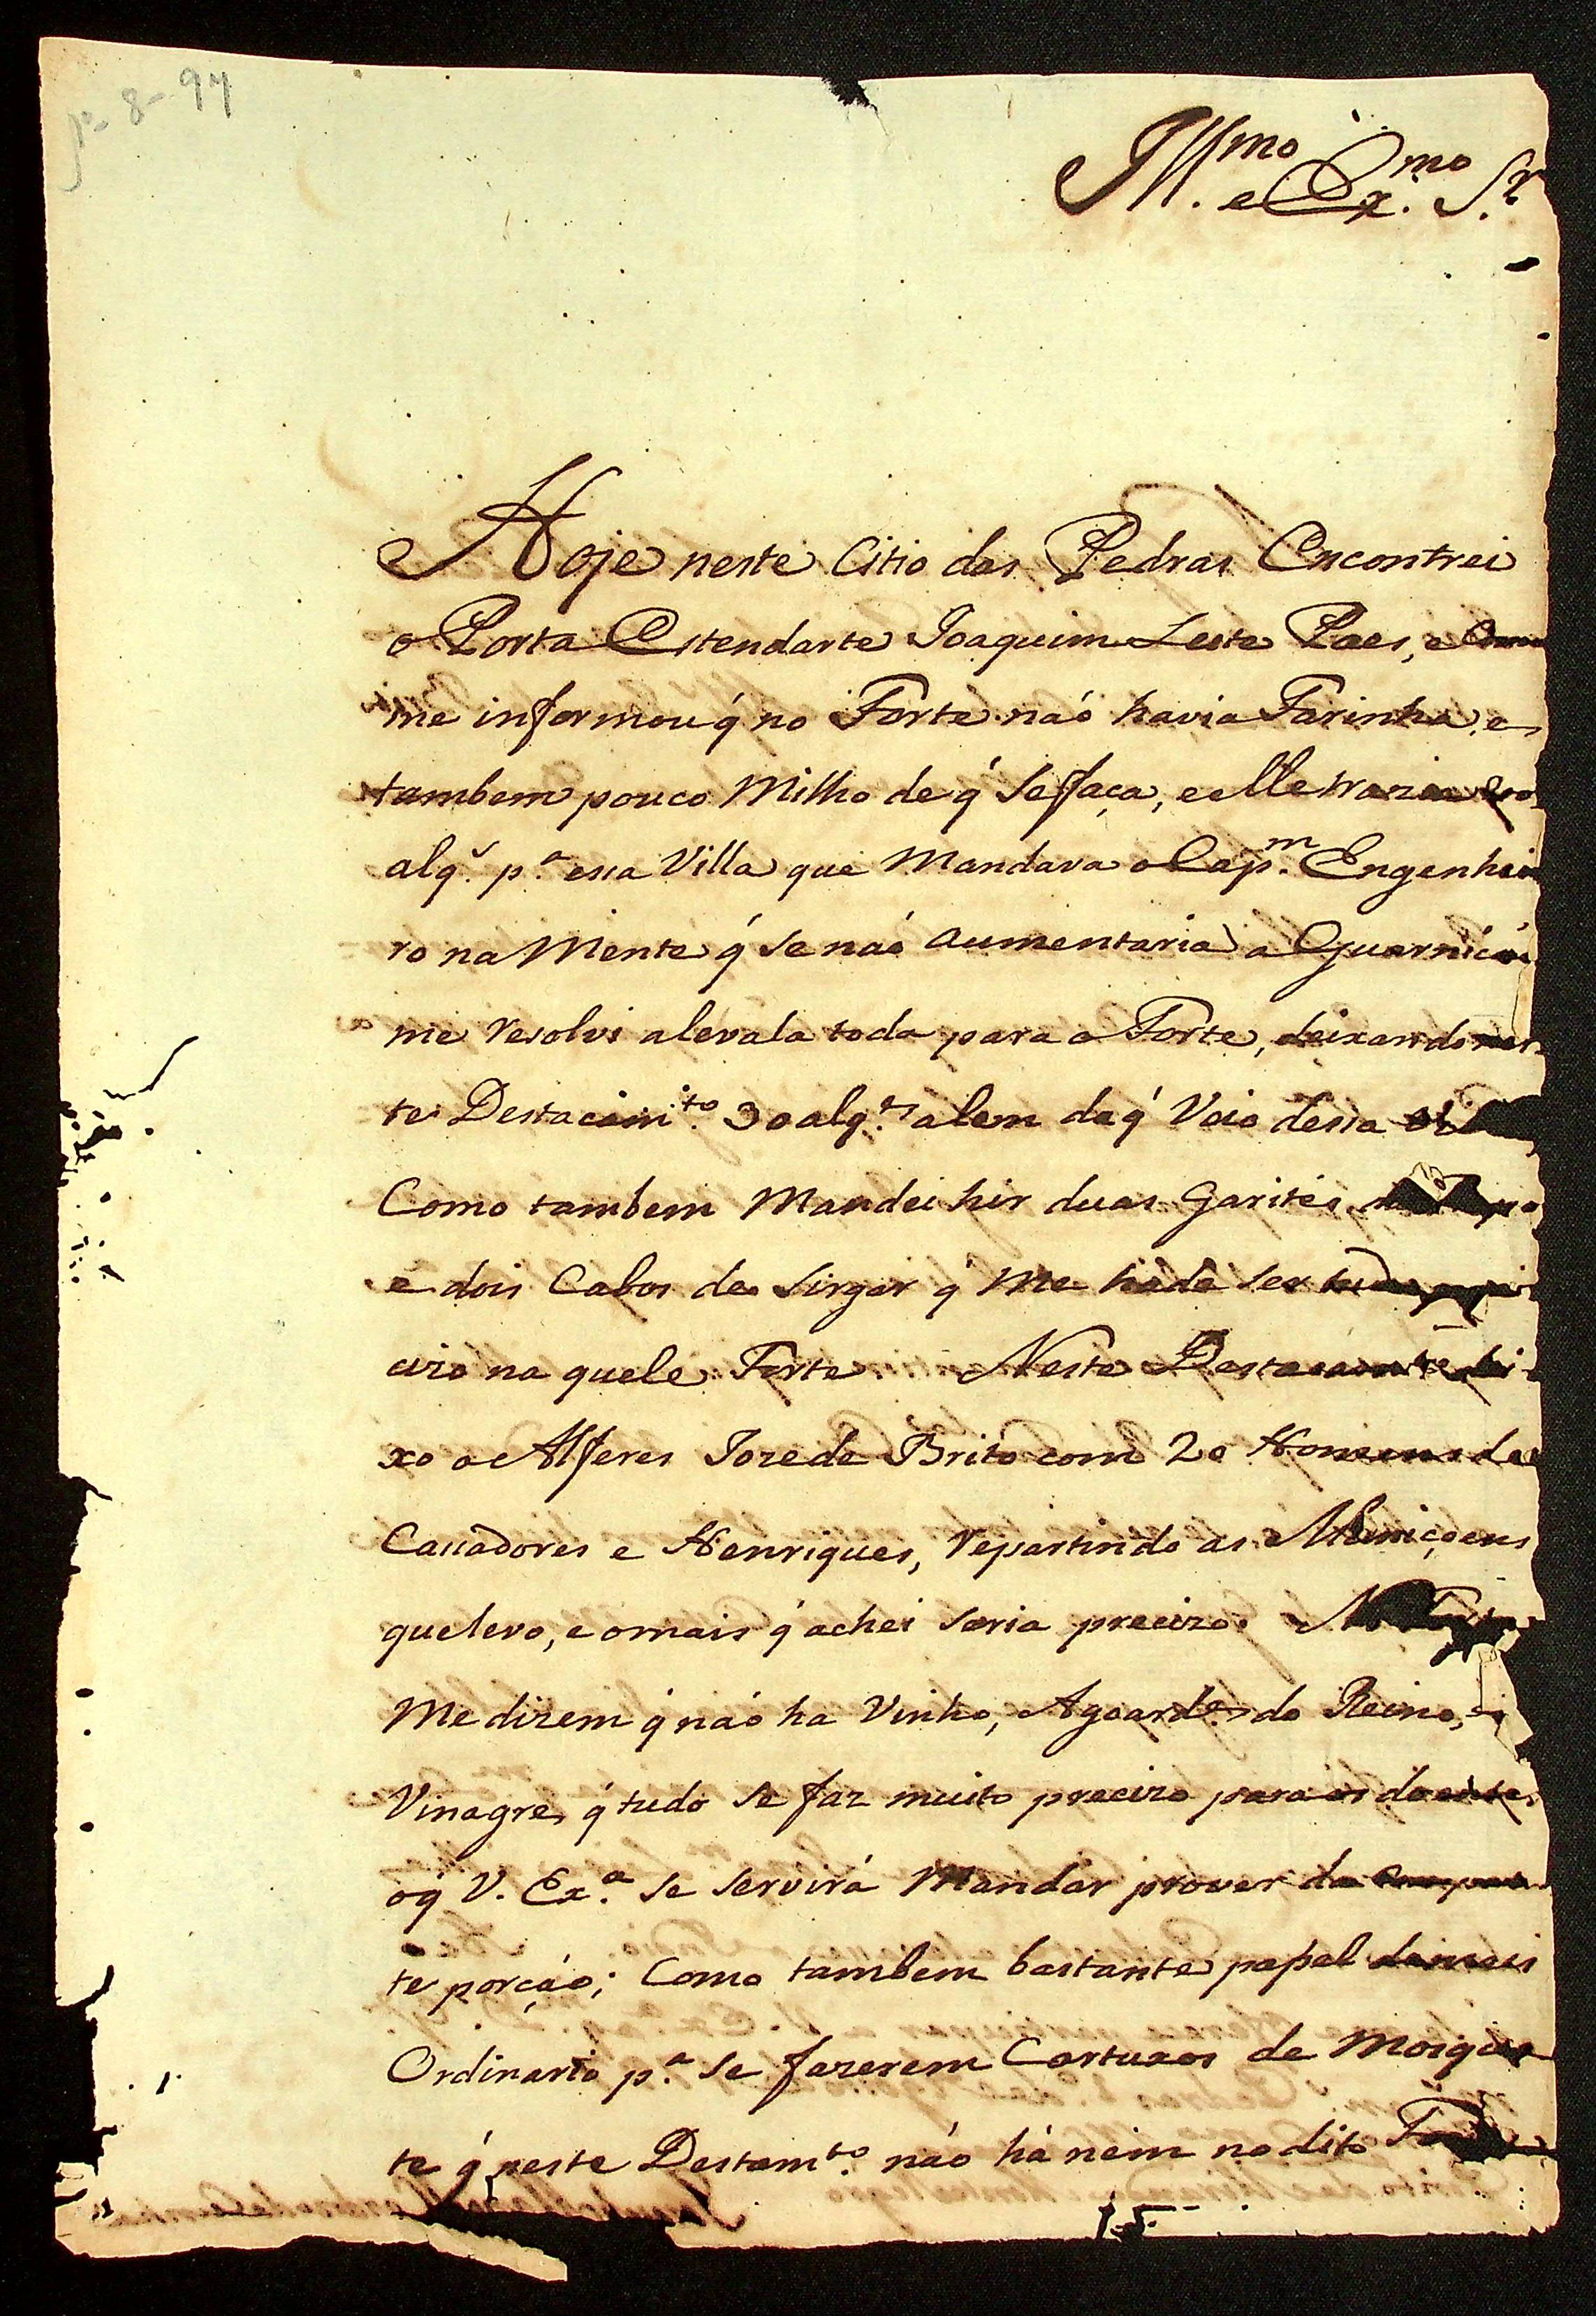 8-97
Ill.mo e Ex.mo S.r
Hoje neste Citio das Pedras Encontrei
o Porta Estendarte Joaquim Leite Paes, e Como
me informou q̃ no Forte naó havia Farinha, e
tambem pouco Milho de q̃ Sefaça, e elle trazia
alq.s p.a essa Villa que Mandava o Cap.m Engenhei
ro na Mente q̃ se naó aumentaria a Guarniçaó
me resolvi alevala toda para o Forte, deixando nes
te Destacam.to 30 alq.s alem da q̃ Veio dessa
Como tambem Mandei hir duas Garités
e dois Cabos de Sirgar q̃ Me hade ser tudo
cizo na quele Forte Neste Destacam.to dei
xo o Alferes Joze de Brito com 20 Homens de
Cassadores e Henriques, repartindo as Muniçoens
que levo, e omais q̃ achei seria precizo.
Me dizem q̃ náo ha Vinho, Agoard.e do Reino, e
Vinagre, q̃ tudo se faz muito precizo para os doentes
oq̃ V. Ex.a se servirá Mandar prover da
te porçáo; Como tambem bastante papel do mais
Ordinario p.a se fazerem Cartuxos de Mosque
te q̃ neste Destam.to náo há nem no dito